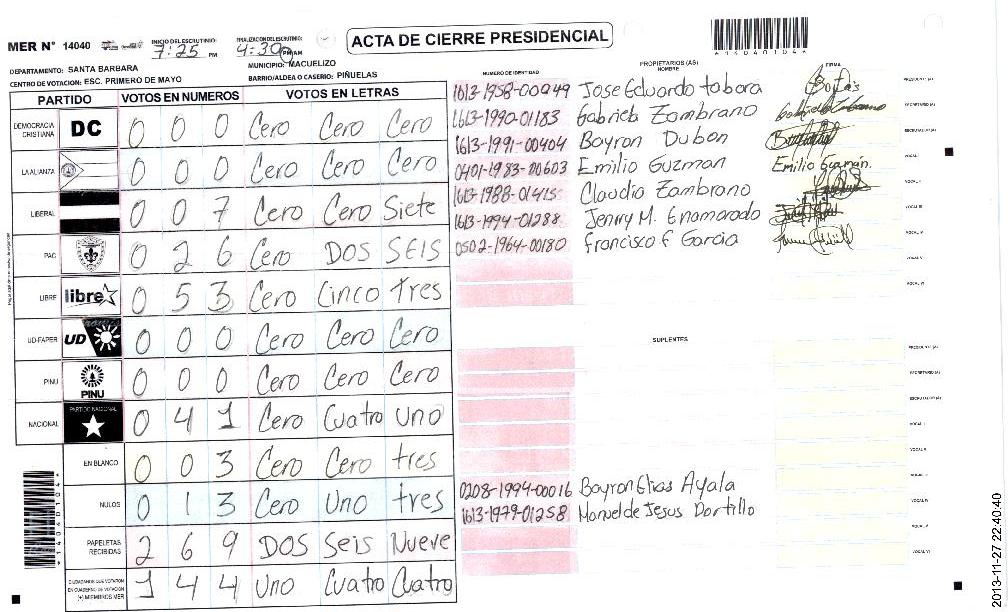 MER N° 14040
INICIO DEL ESCRUTINIO: 7:25 PM
FINALIZACION DEL ESCRUTINIO: 4:30 PM AM
ACTA DE CIERRE PRESIDENCIAL
*1404010 4*
DEPARTAMENTO: SANTA BARBARA
MUNICIPIO: MACUELIZO
CENTRO DE VOTACION: ESC. PRIMERO DE MAYO
BARRIO/ALDEA O CASERIO: PIÑUELAS
PARTIDO VOTOS EN NUMEROS VOTOS EN LETRAS
DEMOCRACIA CRISTIANA DC 0 0 0 Cero Cero Cero
LA ALIANZA 0 0 0 Cero Cero Cero
LIBERAL 0 0 7 Cero Cero Siete
PAC 0 2 6 Cero DOS SEIS
LIBRE libre 0 5 3 Cero Cinco tres
UD-FAPER UD 0 0 0 Cero Cero Cero
PINU PINU 0 0 0 Cero Cero Cero
NACIONAL PARTIDO NACIONAL 0 4 1 Cero Cuatro Uno
EN BLANCO 0 0 3 Cero Cero tres
NULOS 0 1 3 Cero Uno tres
PAPELETAS RECIBIDAS 2 6 9 DOS Seis Nueve
CIUDADANOS QUE VOTARON EN CUADERNO DE VOTACION (+) MIEMBROS MER 1 4 4 Uno Cuatro Cuatro
NUMERO DE IDENTIDAD PROPIETARIOS (AS) NOMBRE FIRMA
1613-1958-00049 Jose Eduardo tabora PRESIDENTE (A)
1613-1990-01183 Gabriela Zambrano SECRETARIO (A)
1613-1991-00404 Boyron Dubon ESCRUTADOR (A)
0401-1983-00603 Emilio Guzman Emilio Guzmán. VOCAL I
1613-1988-01415 Claudia Zambrano VOCAL II
1613-1994-01288 Jenny M. Enamorado VOCAL III
0502-1964-00180 francisco f Garcia VOCAL IV
VOCAL V
VOCAL VI
SUPLENTES
PRESIDENTE (A)
SECRETARIO (A)
ESCRUTADOR (A)
VOCAL I
VOCAL II
VOCAL III
0208-1994-00016 Bayron Elias Ayala VOCAL IV
1613-1979-01258 Manuel de Jesus Portillo VOCAL V
VOCAL VI
2013-11-27 22:40:40